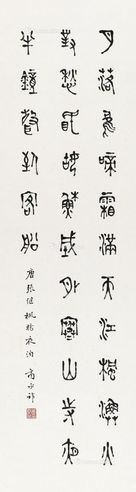 月落烏啼霜滿天江楓漁火
對愁眠姑蘇城外寒山寺夜
半鐘聲到客船
唐張繼楓橋夜泊 商承祚